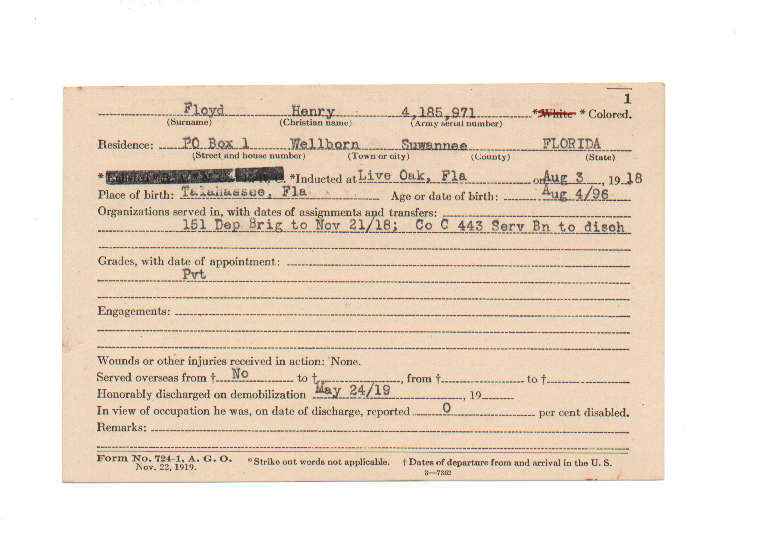 1
Floyd Henry 4,185,971 *White * Colored.
(Surname) (Christian name) (Army serial number)
Residence: PO Box 1 Wellborn Suwannee FLORIDA
(Street and house number) (Town or city) (County) (State)
* *Inducted at Live Oak, Fla on Aug 3, 1918
Place of birth: Talahassee, Fla Age or date of birth: Aug 4/96
Organizations served in, with dates of assignments and transfers:
151 Dep Brig to Nov 21/18; Co C 443 Serv Bn to disch
Grades, with date of appointment:
Pvt
Engagements:
Wounds or other injuries received in action: None.
Served overseas from † No to †, from † to †
Honorably discharged on demobilization May 24/19, 19
In view of occupation he was, on date of discharge, reported 0 per cent disabled.
Remarks:
Form No. 724-1, A. G. O. *Strike out words not applicable. † Dates of departure from and arrival in the U. S.
Nov. 22, 1919. 3—7362